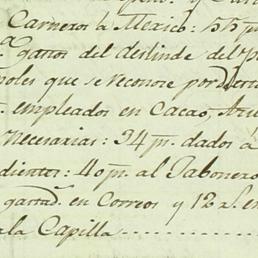 Carneros a Mexico: 55 p
gastos del deslinde del
que se reconoce por
empleados en Cacao,
Necesarias: 34 p.s dados á
40 p.s al Jabonero
gastad.s en Correos y 12 r.s en
la Capilla